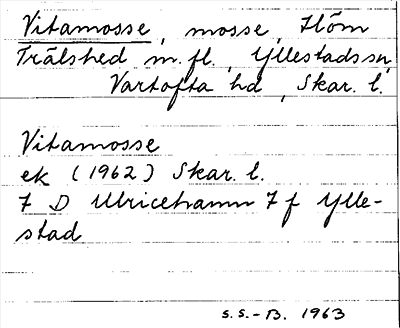 Vitamosse, mosse, Höm
Trälshed m.fl., Yllestads sn,
Vartofta hd, Skar. l.
Vitamosse
ek (1962) Skar. l.
7 D Ulricehamn 7 f Ylle-
stad
S.S.-B. 1963